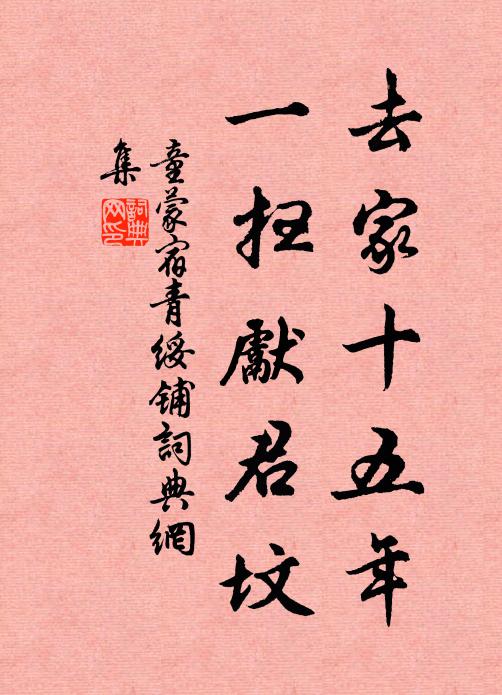 去家十五年
一扫獻君坟
童蒙宿青綏铺詞典網
集
詞典
网印